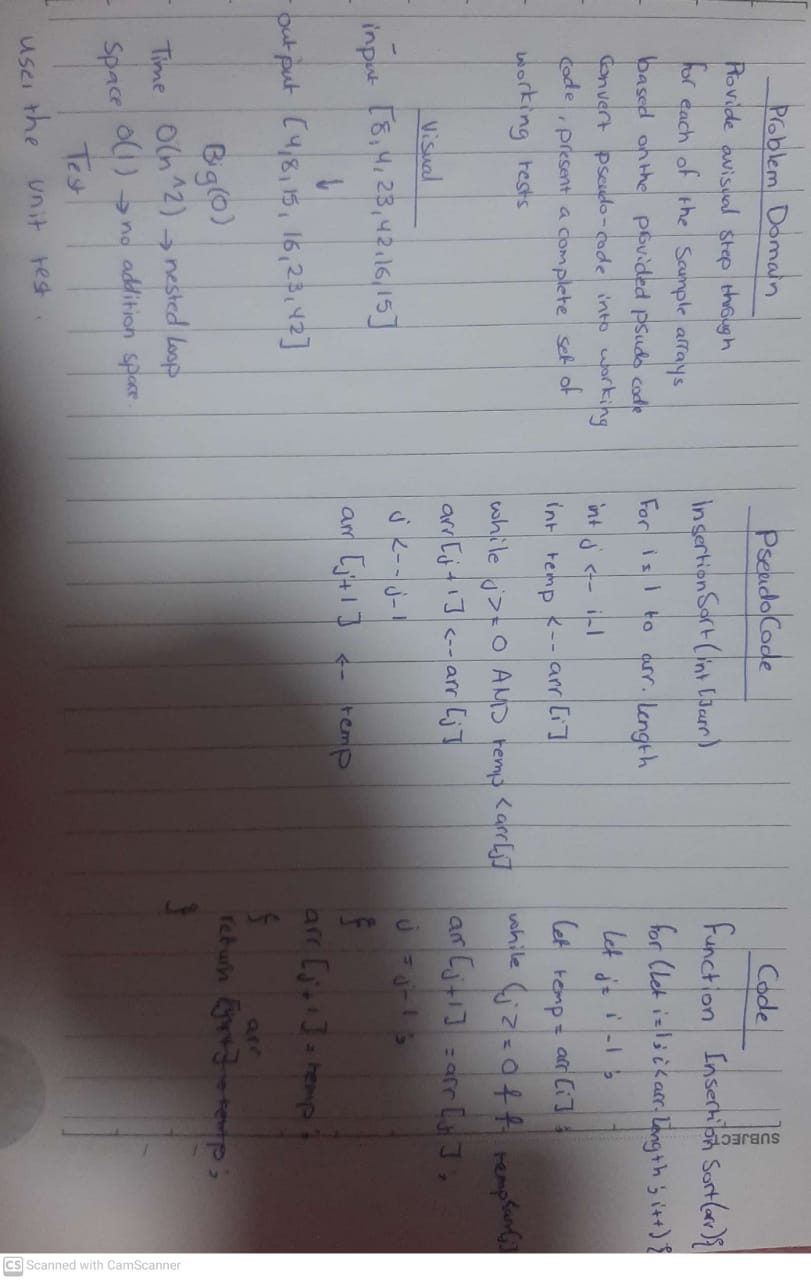 Problem Domain
Provide avisual step through
for each of the sample arrays
based on the provided psudo code
Convert pseudo-code into working
code, present a complete set of
working tests
Visual
input [8,4,23,42,16,15]
↓
output [4,8,15,16,23,42]
Big(O)
Time O(n^2) → nested loop
Space O(1) → no addition space.
Test
the unit test.
PseudoCode
InsertionSort(int[]arr)
For i=1 to arr.length
int j <-- i-1
int temp <-- arr[i]
while j>=0 AND temp <arr[j]
arr[j+1] <-- arr[j]
j <-- j-1
arr [j+1] <-- temp
Code
function Insertion Sort(arr){
for (let i=1; i<arr.length; i++) {
let j= i-1;
let temp = arr[i];
while (j>=0 && temp<arr[j]
arr[j+1] = arr[j];
j = j-1;
}
arr [j+1] = temp;
}
arr
return
}
SUBJECT
CS Scanned with CamScanner